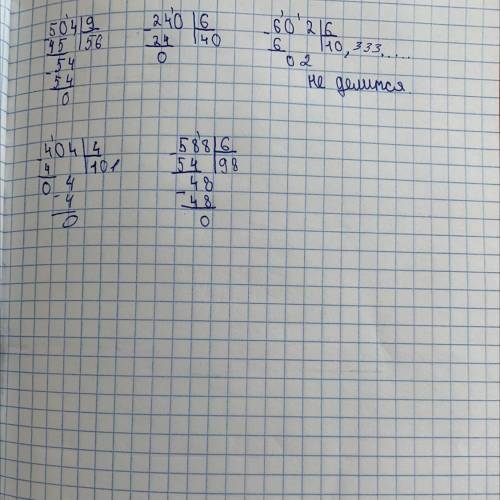 504 | 9
45 | 56
54
54
0
240 | 6
24 | 40
0
602 | 6
6 | 10,333,....
02
не делится
404 | 4
4 | 101
0 4
4
0
588 | 6
54 | 98
48
48
0